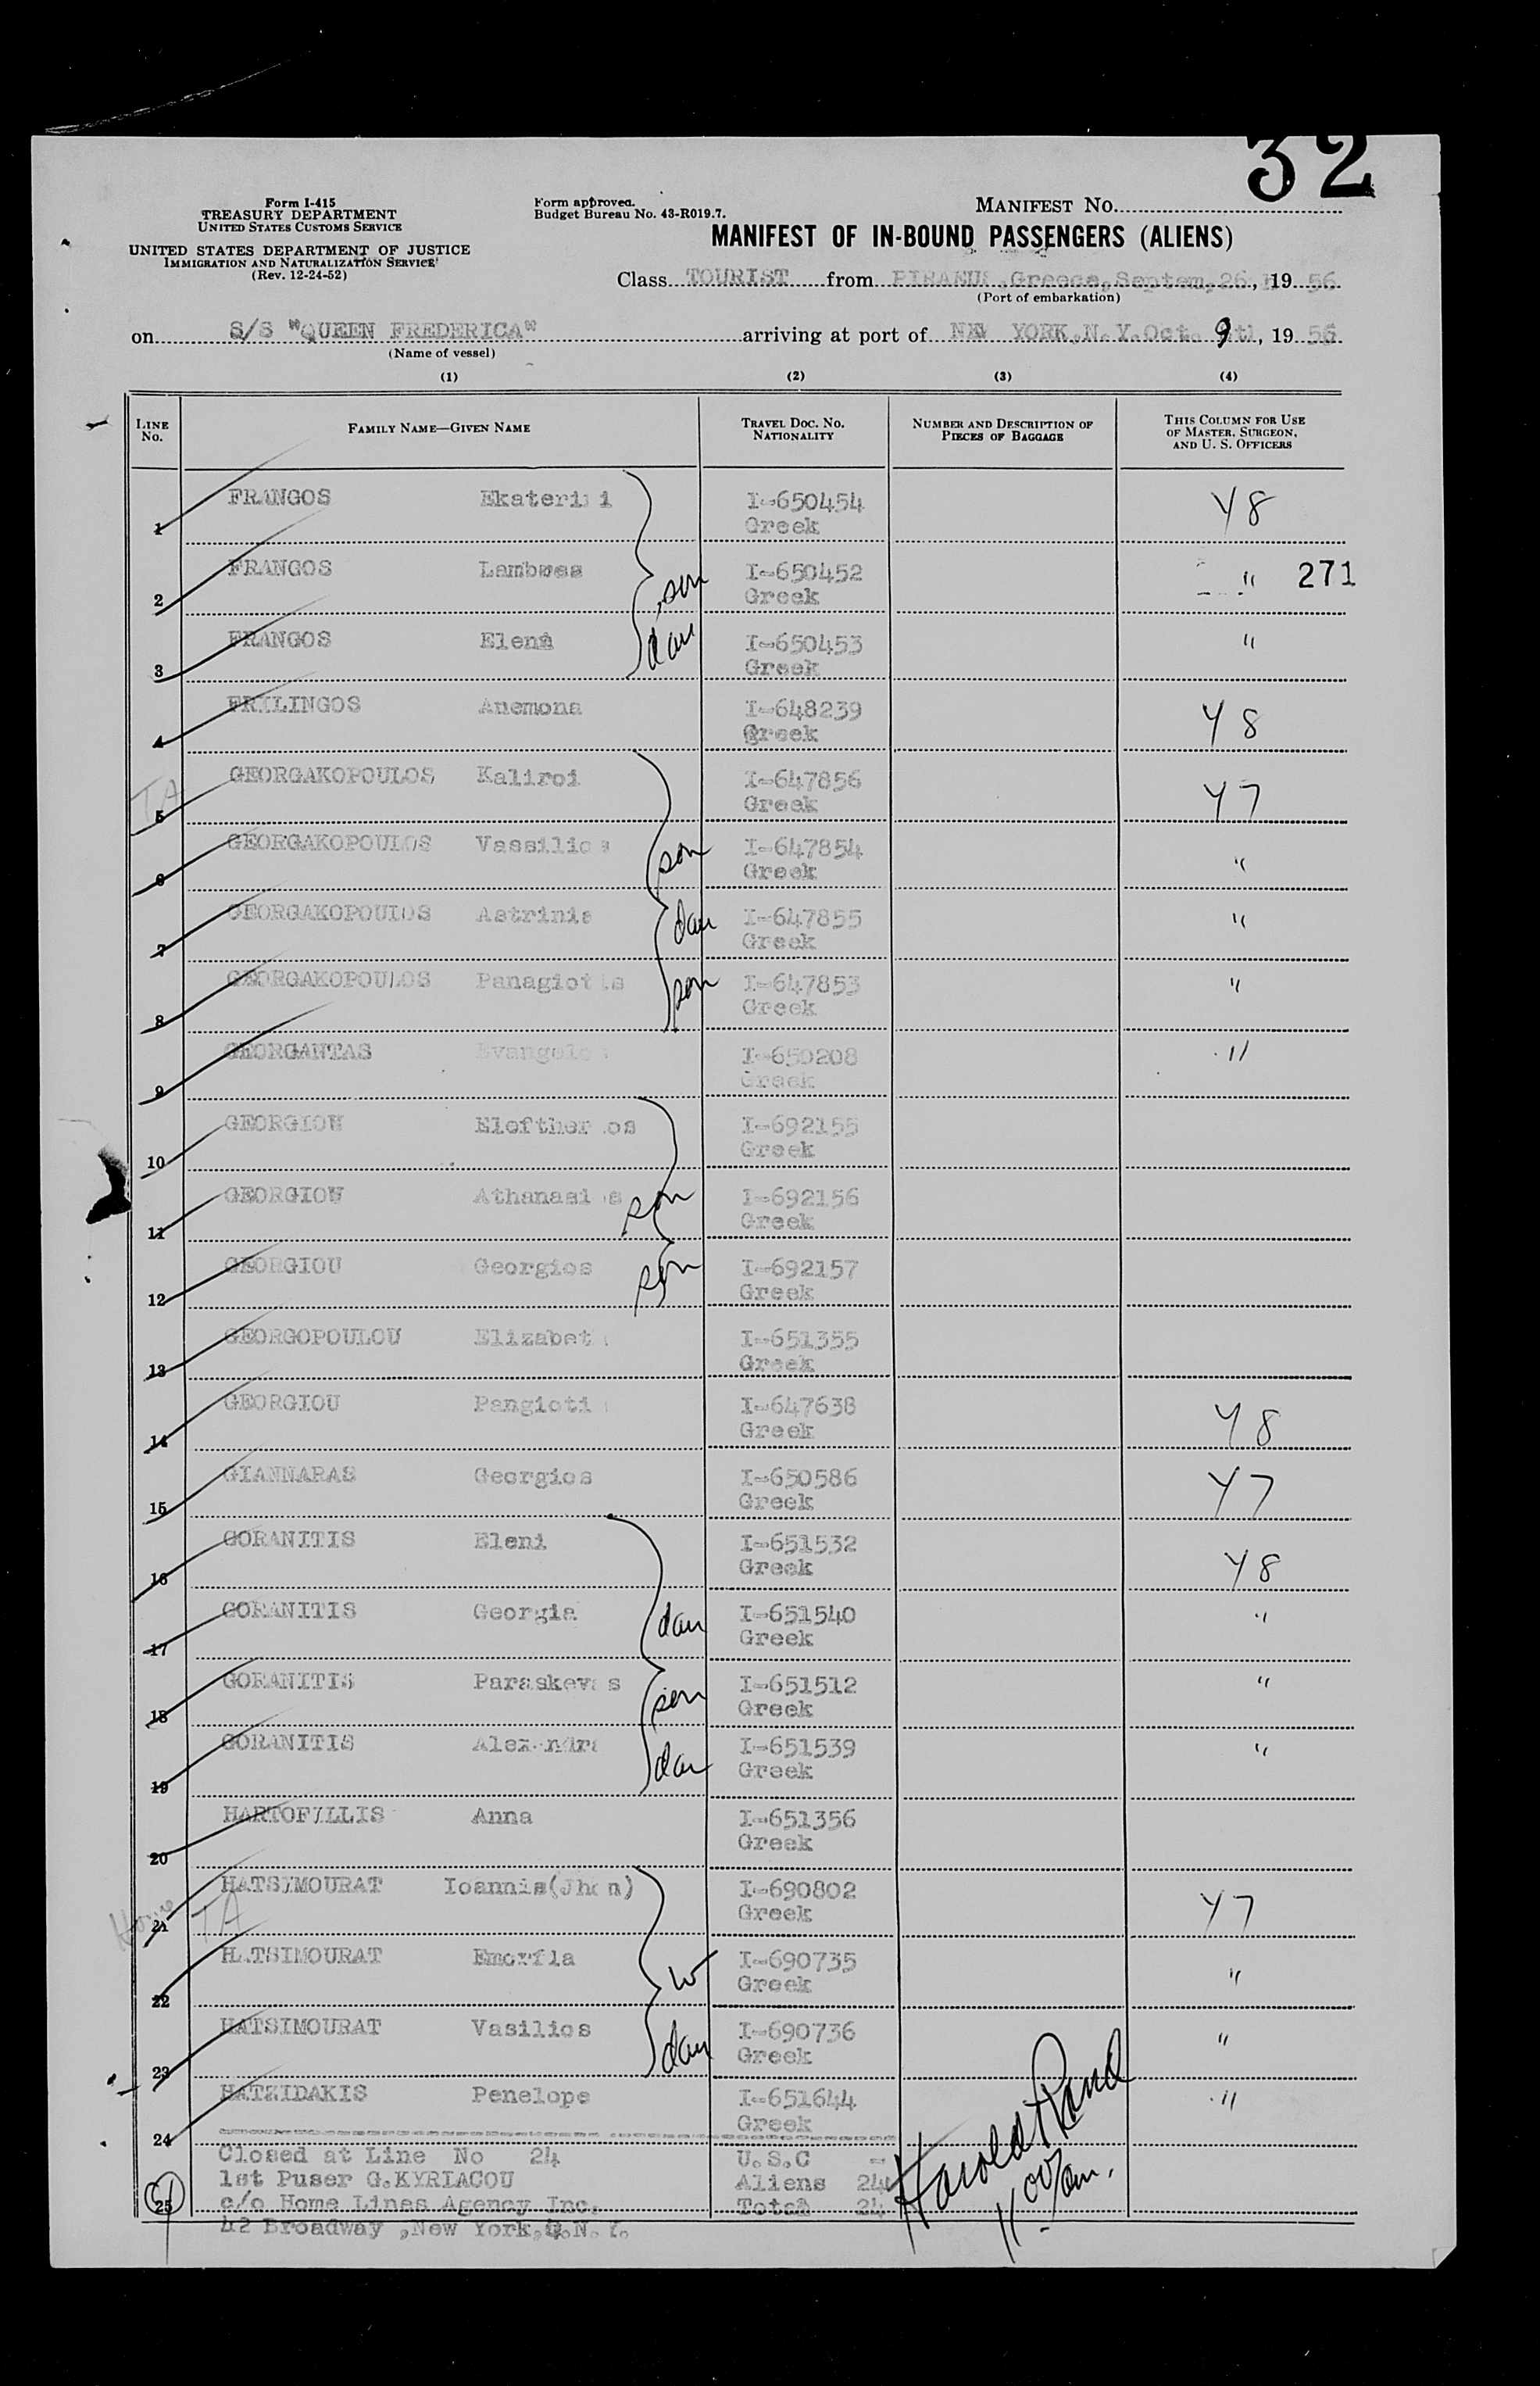 32
Form I-415
TREASURY DEPARTMENT
UNITED STATES CUSTOMS SERVICE
UNITED STATES DEPARTMENT OF JUSTICE
IMMIGRATION AND NATURALIZATION SERVICE
(Rev. 12-24-52)
Form approved.
Budget Bureau No. 43-R019.7.
MANIFEST NO.
MANIFEST OF IN-BOUND PASSENGERS (ALIENS)
Class TOURIST from PIRAEUS, Greece, Septem, 26, 19 56
(Port of embarkation)
on S/S "QUEEN FREDERICA" arriving at port of NEW YORK, N.Y. Oct. 9th, 19 56
(Name of vessel)
(1) (2) (3) (4)
LINE NO. FAMILY NAME—GIVEN NAME TRAVEL DOC. NO. NATIONALITY NUMBER AND DESCRIPTION OF PIECES OF BAGGAGE THIS COLUMN FOR USE OF MASTER, SURGEON, AND U. S. OFFICERS
1 FRANGOS Ekaterini I-650454 Greek Y8
2 FRANGOS Lambros son I-650452 Greek " 271
3 FRANGOS Elena dau I-650453 Greek "
4 FRILINGOS Anemona I-648239 Greek Y8
TA 5 GEORGAKOPOULOS Kaliroi I-647856 Greek Y7
6 GEORGAKOPOULOS Vassilios son I-647854 Greek "
7 GEORGAKOPOULOS Astrinia dau I-647855 Greek "
8 GEORGAKOPOULOS Panagiotis son I-647853 Greek "
9 GEORGANTAS Evangelos I-650208 Greek "
10 GEORGIOU Eleftherios I-692155 Greek
11 GEORGIOU Athanasios son I-692156 Greek
12 GEORGIOU Georgios son I-692157 Greek
13 GEORGOPOULOU Elizabet I-651355 Greek
14 GEORGIOU Pangioti I-647638 Greek Y8
15 GIANNARAS Georgios I-650586 Greek Y7
16 GORANITIS Eleni I-651532 Greek Y8
17 GORANITIS Georgia dau I-651540 Greek "
18 GORANITIS Paraskevas son I-651512 Greek "
19 GORANITIS Alexandra dau I-651539 Greek "
20 HARTOFILLIS Anna I-651356 Greek
21 TA HATSIMOURAT Ioannis(Jhon) I-690802 Greek Y7
22 HATSIMOURAT Emorfia W I-690735 Greek "
23 HATSIMOURAT Vasilios dau I-690736 Greek "
24 HATZIDAKIS Penelope I-651644 Greek "
Closed at Line No 24 U.S.C -
1st Puser G.KYRIACOU Aliens 24
25 c/o Home Lines Agency Inc. Total 24
42 Broadway ,New York, N.Y.
Harold Rand
11 00/am.